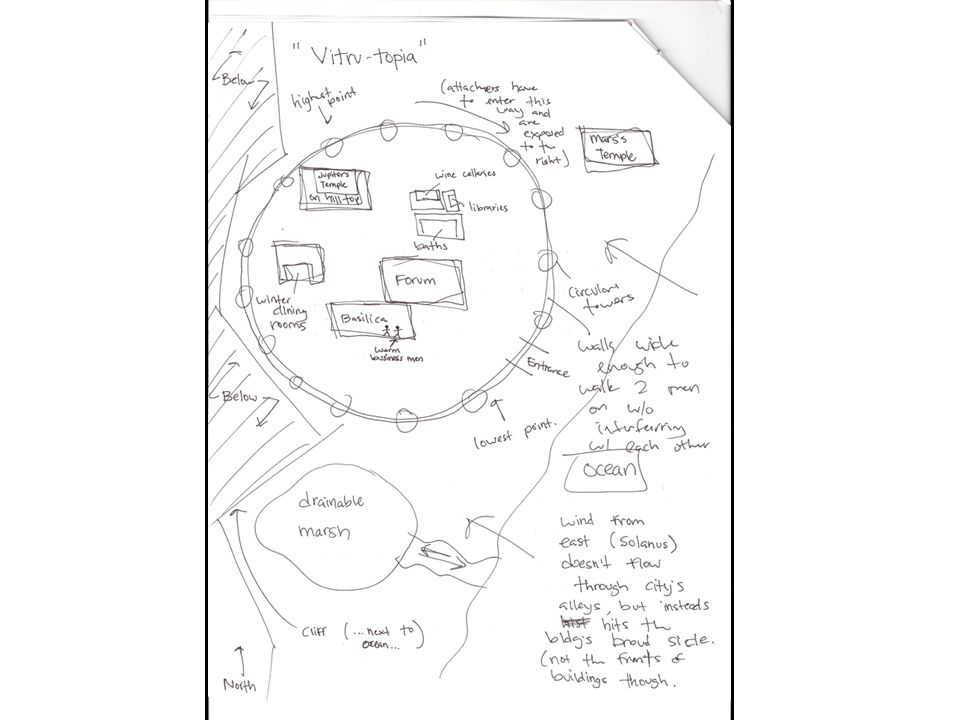 "Vitru-topia"
Below
highest point
(attackers have
to enter this
way and
are
exposed
to the
right)
Mars's
Temple
Jupiter's
Temple
on hill top
wine cellaries
libraries
baths
Forum
winter
dining
rooms
Basilica
warm
business men
Circular
towers
Entrance
walls wide
enough to
walk 2 men
on w/o
interferring
w/ each other
Below
lowest point.
ocean
drainable
marsh
wind from
east (Solanus)
doesn't flow
through city's
alleys, but insteads
hits the
bldg's broad side.
(not the fronts of
buildings though.
Cliff (...next to
ocean...)
North